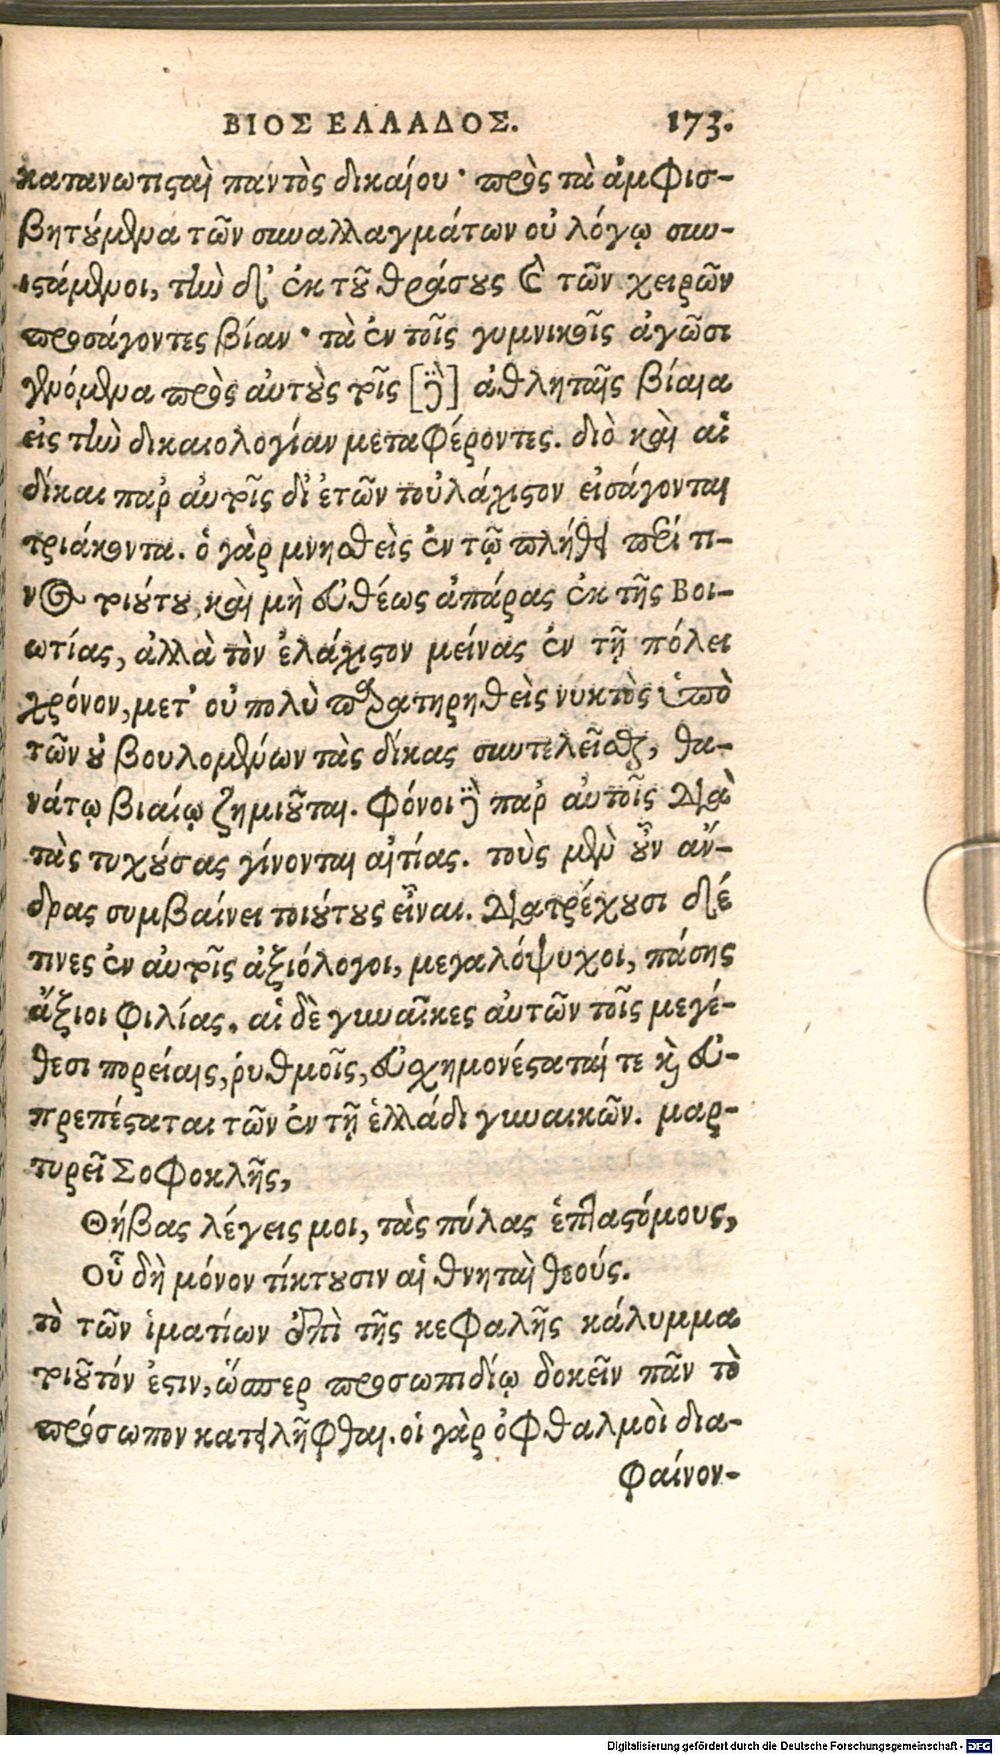 ΒΙΟΣ ΕΛΛΑΔΟΣ. 173.
κατανωτισταὶ παντὸς δικαίου· πρὸς τὰ ἀμφισ-
βητούμενα τῶν συναλλαγμάτων οὐ λόγῳ συν-
ιστάμενοι, τὴν δ' ἐκ τοῦ θράσους καὶ τῶν χειρῶν
προσάγοντες βίαν· τὰ ἐν τοῖς γυμνικοῖς ἀγῶσι
γινόμενα πρὸς αὐτοὺς τοῖς [δὲ] ἀθληταῖς βίαια
εἰς τὴν δικαιολογίαν μεταφέροντες. διὸ καὶ αἱ
δίκαι παρ' αὐτοῖς δι' ἐτῶν τοὐλάχιστον εἰσάγονται
τριάκοντα. ὁ γὰρ μνησθεὶς ἐν τῷ πλήθει περί τι-
νος τοιούτου, καὶ μὴ εὐθέως ἀπάρας ἐκ τῆς Βοι-
ωτίας, ἀλλὰ τὸν ἐλάχιστον μείνας ἐν τῇ πόλει
χρόνον, μετ' οὐ πολὺ παρατηρηθεὶς νυκτὸς ὑπὸ
τῶν οὐ βουλομένων τὰς δίκας συντελεῖσθαι, θα-
νάτῳ βιαίῳ ζημιοῦται. Φόνοι δὲ παρ' αὐτοῖς διὰ
τὰς τυχούσας γίνονται αἰτίας. τοὺς μὲν οὖν ἄν-
δρας συμβαίνει τοιούτους εἶναι. διατρέχουσι δέ
τινες ἐν αὐτοῖς ἀξιόλογοι, μεγαλόψυχοι, πάσης
ἄξιοι φιλίας. αἱ δὲ γυναῖκες αὐτῶν τοῖς μεγέ-
θεσι πορείαις, ῥυθμοῖς, εὐσχημονέσταταί τε καὶ εὐ-
πρεπέσταται τῶν ἐν τῇ ἑλλάδι γυναικῶν. μαρ-
τυρεῖ Σοφοκλῆς,
Θήβας λέγεις μοι, τὰς πύλας ἑπταστόμους,
Οὗ δὴ μόνον τίκτουσιν αἱ θνηταὶ θεούς.
τὸ τῶν ἱματίων ἐπὶ τῆς κεφαλῆς κάλυμμα
τοιοῦτόν ἐστιν, ὥσπερ προσωπιδίῳ δοκεῖν πᾶν τὸ
πρόσωπον κατειλῆφθαι. οἱ γὰρ ὀφθαλμοὶ δια-
φαίνον-
Digitalisierung gefördert durch die Deutsche Forschungsgemeinschaft - DFG